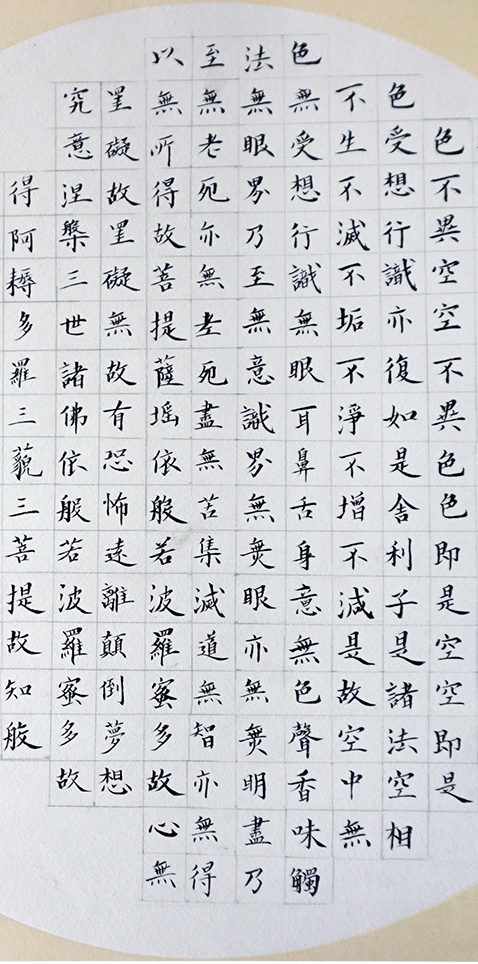 色不異空空不異色色即是空空即是
色受想行識亦復如是舍利子是諸法空相
不生不滅不垢不淨不增不減是故空中無
色無受想行識無眼耳鼻舌身意無色聲香味觸
法無眼界乃至無意識界無無眼亦無無明盡乃
至無老死亦無老死盡無苦集滅道無智亦無得
以無所得故菩提薩埵依般若波羅蜜多故心無
罣礙故罣礙無故有恐怖遠離顛倒夢想
究意涅槃三世諸佛依般若波羅蜜多故
得阿耨多羅三藐三菩提故知般